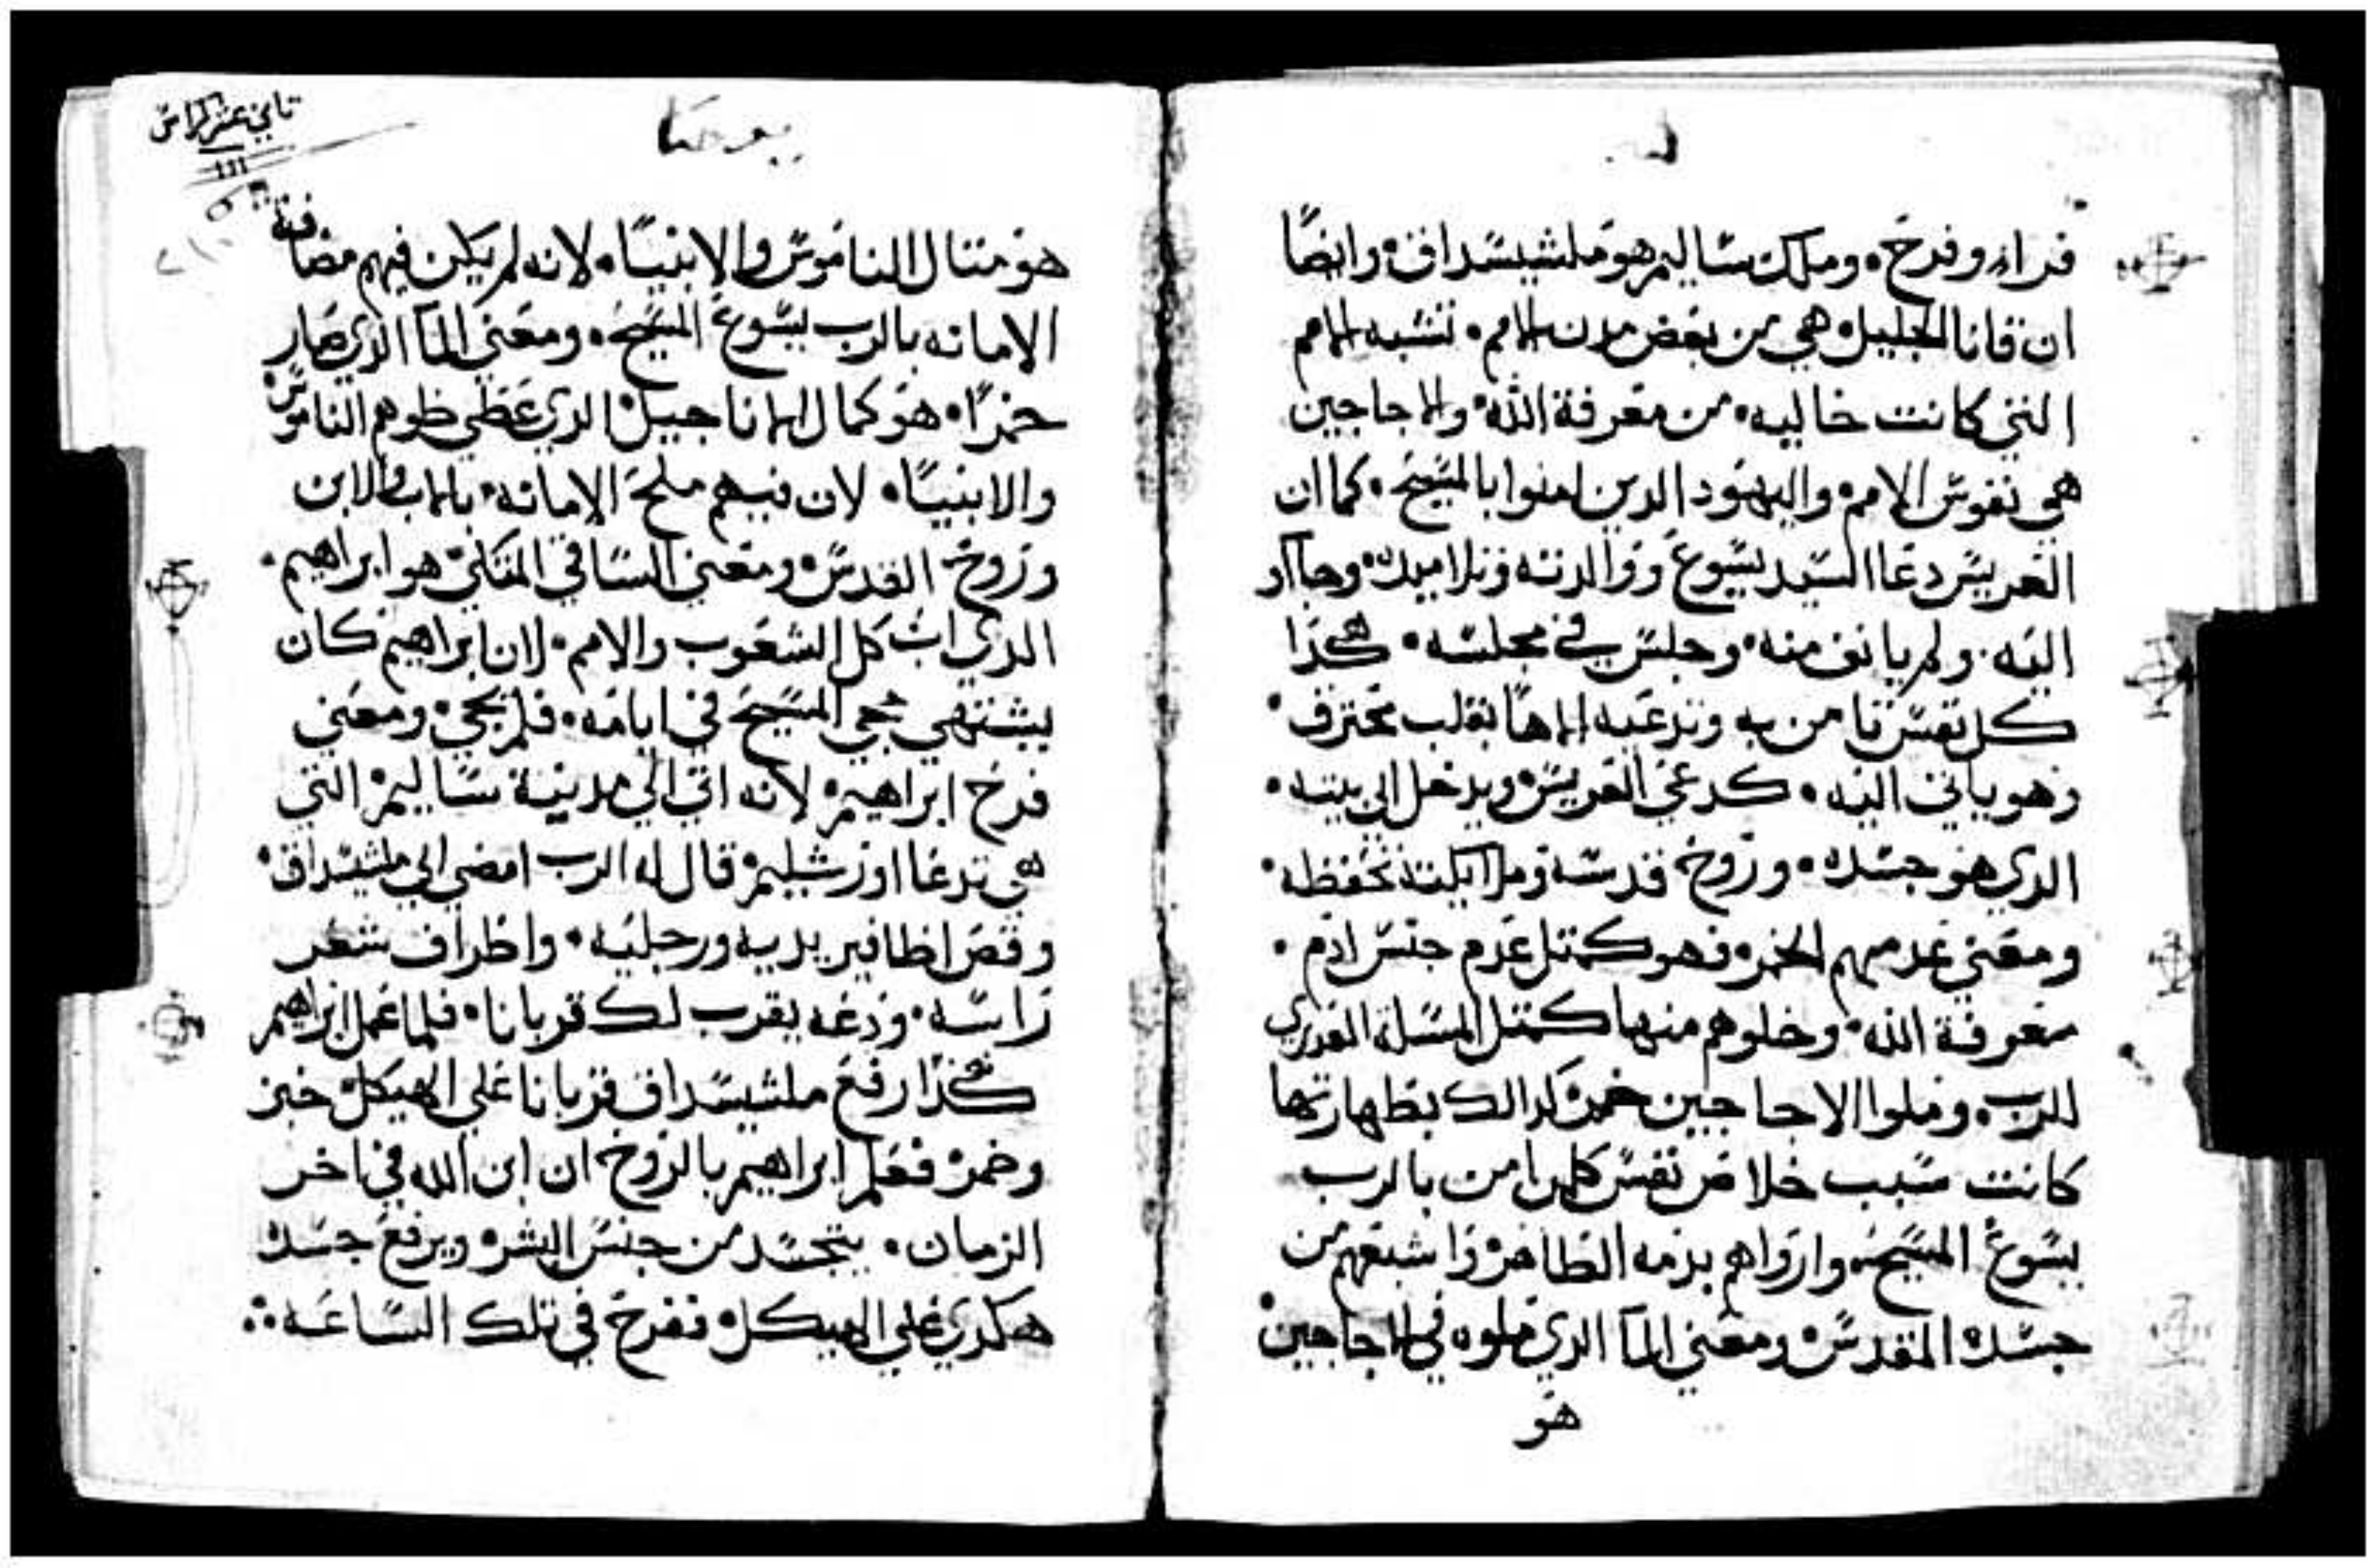 فراه وفرح. وملك ساليم هو ملشيسداق. وايضًا
ان قانا الجليل هي من بعض مدن الامم. تشبه الامم
التي كانت خاليه. من معرفة الله. والاجاجين
هي نفوس الامم واليهود الدين امنوا بالمسيح. كما ان
العريس دعا السيد يسوع ووالدته وتلاميده. وجا
اليه. ولم يانف منه. وجلس في مجلسه. هكذا
كل نفس تامن به وتدعيه الاهًا بقلب محترق.
وهو ياتي اليه. كدعي العريس ويدخل الي بيته.
الدي هو جسده. وروح قدسه وملايكته تحفظه.
ومعني عدمهم الخمر. فهو كمتل عدم جنس ادم.
معرفة الله. وخلوهم منها كمتل المسله
للرب. وملوا الاجاجين خمر كدالك بطهارتها
كانت سبب خلاص نفس كلمن امن بالرب
يسوع المسيح. وارواهم بدمه الطاهر واشبعهم من
جسده المقدس ومعني المآ الدي ملوه في الاجاجين
هو
تاني عشر كراس
يوحنا
هو متال الناموس والانبيًا. لانه لم يكن فيهم مضافة
الامانه بالرب يسوع المسيح. ومعني المآ الدي صار
خمرًا. هو كمال الاناجيل الدي غطي ظوهم الناموس
والانبيًا. لان فيهم ملح الامانه. بالاب والابن
وروح القدس ومعني الساقي المتكي هو ابراهيم.
الدي اب كل الشعوب والامم. لان ابراهيم كان
يشتهي مجي المسيح في ايامه. فلم يجي. ومعني
فرح ابراهيم لانه اتي الي مدينة ساليم التي
هي تدعا اورشليم قال له الرب امضي الي ملشيسداق.
وقص اظافير يديه ورجليه. واطراف شعر
راسه. ودعه يقرب لك قربانا. فلما عمل ابراهيم
هكدا رفع ملشيسداق قربانا علي الهيكل خبز
وخمر فعلم ابراهيم بالروح ان ابن الله في اخر
الزمان. يتجسد من جنس البشر ويرفع جسده
هكدي علي الهيكل ففرح في تلك الساعه